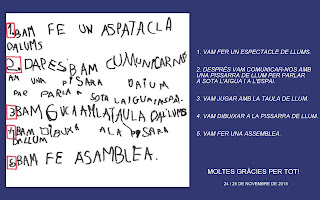 1. BAM FE UN ASPATACLA
DALUMS
2. DAPES BAM CUMUNICARNO
AN UNA PISARA DALUM
PAR PARLA A SOTA LAIGUA I ASPAI.
3 BAM GUGA AMLA TAULA DALUMS
4 BAM DIBUXA A LA PISARA
DALLUM
5 BAM FE ASAMBLEA.
1. VAM FER UN ESPECTACLE DE LLUMS.
2. DESPRÉS VAM COMUNICAR-NOS AMB
UNA PISSARRA DE LLUM PER PARLAR
A SOTA L'AIGUA I A L'ESPAI.
3. VAM JUGAR AMB LA TAULA DE LLUM.
4. VAM DIBUIXAR A LA PISSARRA DE LLUM.
5. VAM FER UNA ASSEMBLEA.
MOLTES GRÀCIES PER TOT!
24 I 25 DE NOVEMBRE DE 2016